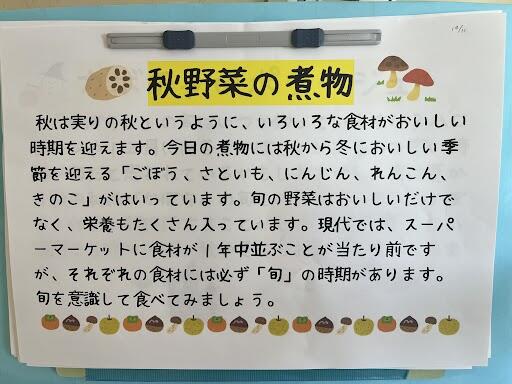 秋野菜の煮物
秋は実りの秋というように、いろいろな食材がおいしい
時期を迎えます。今日の煮物には秋から冬においしい季
節を迎える「ごぼう、さといも、にんじん、れんこん、
きのこ」がはいっています。旬の野菜はおいしいだけで
なく、栄養もたくさん入っています。現代では、スーパ
ーマーケットに食材が1年中並ぶことが当たり前です
が、それぞれの食材には必ず「旬」の時期があります。
旬を意識して食べてみましょう。